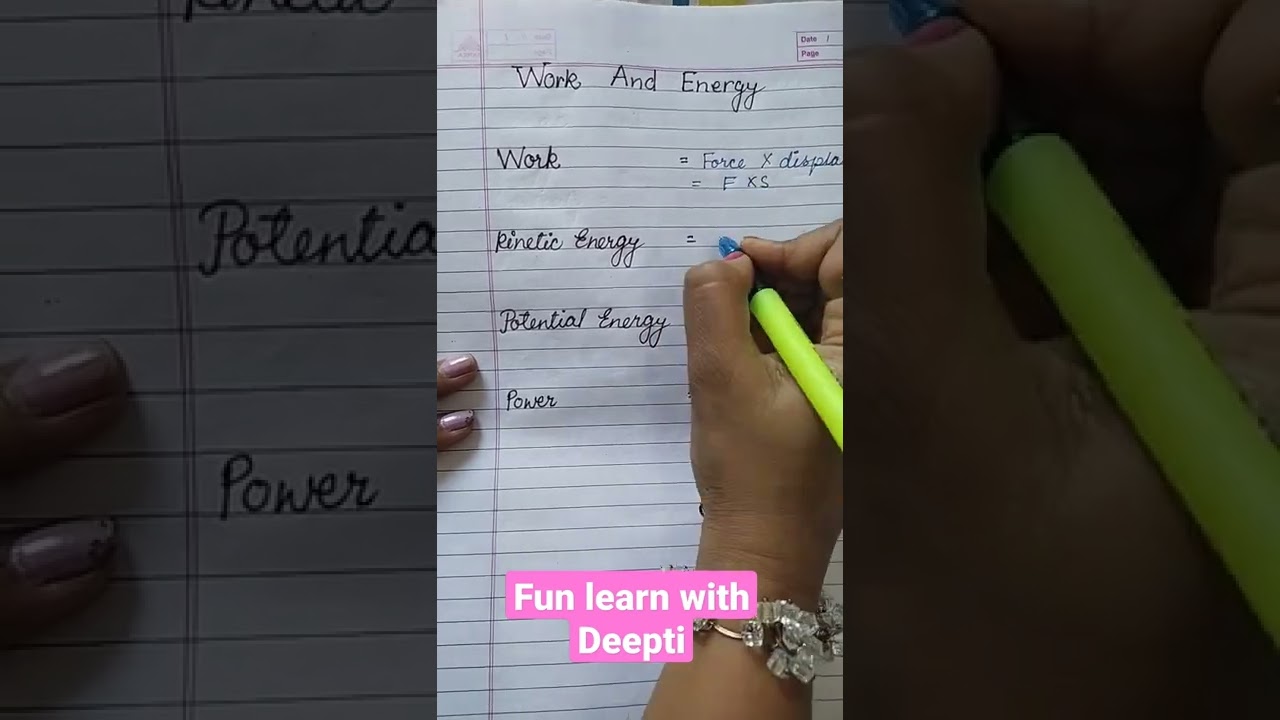 Date /
Page
Work And Energy
Work = Force X displa
= F X S
Kinetic Energy =
Potential Energy
Power
Potentia
Power
Fun learn with
Deepti